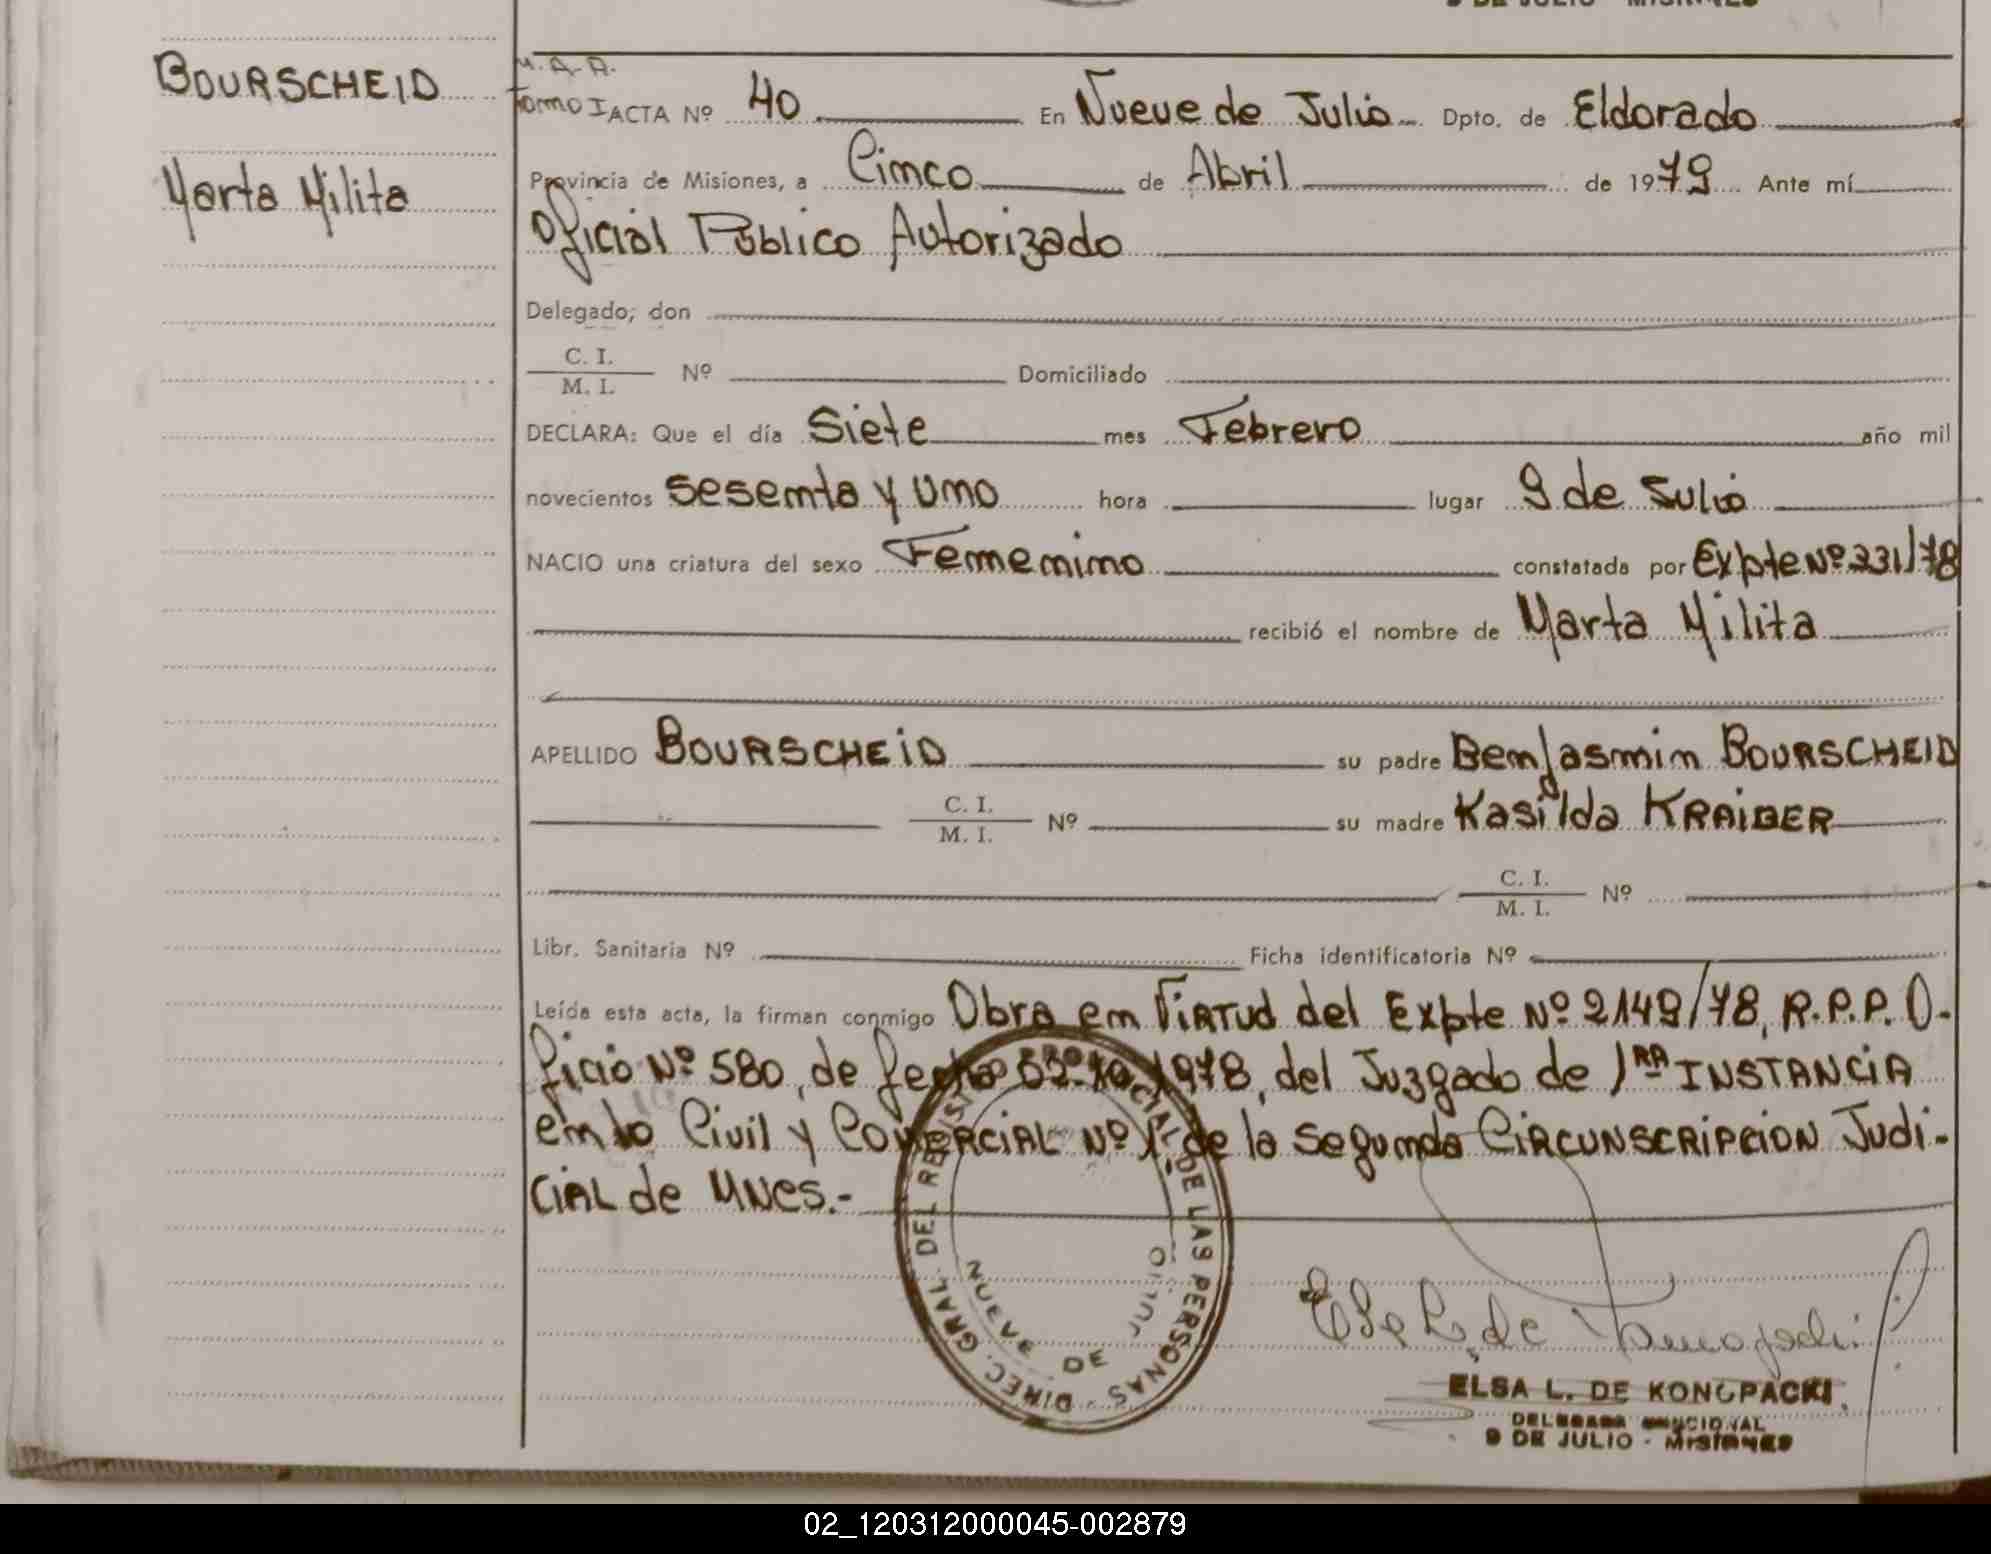 9 DE JULIO - MISIONES
BOURSCHEID
Marta Milita
M.A.A.
Tomo I ACTA Nº 40 En Nueve de Julio Dpto. de Eldorado
Provincia de Misiones, a Cinco de Abril de 1979 Ante mí
Oficial Público Autorizado
Delegado, don
C. I.
M. I. Nº Domiciliado
DECLARA: Que el día Siete mes Febrero año mil
novecientos sesenta y uno hora lugar 9 de Julio
NACIO una criatura del sexo Femenino constatada por Expte Nº 331/78
recibió el nombre de Marta Milita
APELLIDO BOURSCHEID su padre Benjasmin BOURSCHEID
C. I.
M. I. Nº su madre Kasilda KRAIBER
C. I.
M. I. Nº
Libr. Sanitaria Nº Ficha identificatoria Nº
Leída esta acta, la firman conmigo Obra en Virtud del Expte Nº 2149/78, R.P.P. O-
ficio Nº 580, de fecha 02-10-1978, del Juzgado de 1RA INSTANCIA
en lo Civil y COMERCIAL Nº 1 de la Segunda CIRCUNSCRIPCION Judi-
CIAL de MNES.-
DIREC. GRAL. DEL REGISTRO PROVINCIAL DE LAS PERSONAS
NUEVE DE JULIO
Elsa L. de Konopacki
ELSA L. DE KONOPACKI
DELEGADA SECCIONAL
9 DE JULIO - MISIONES
02_120312000045-002879